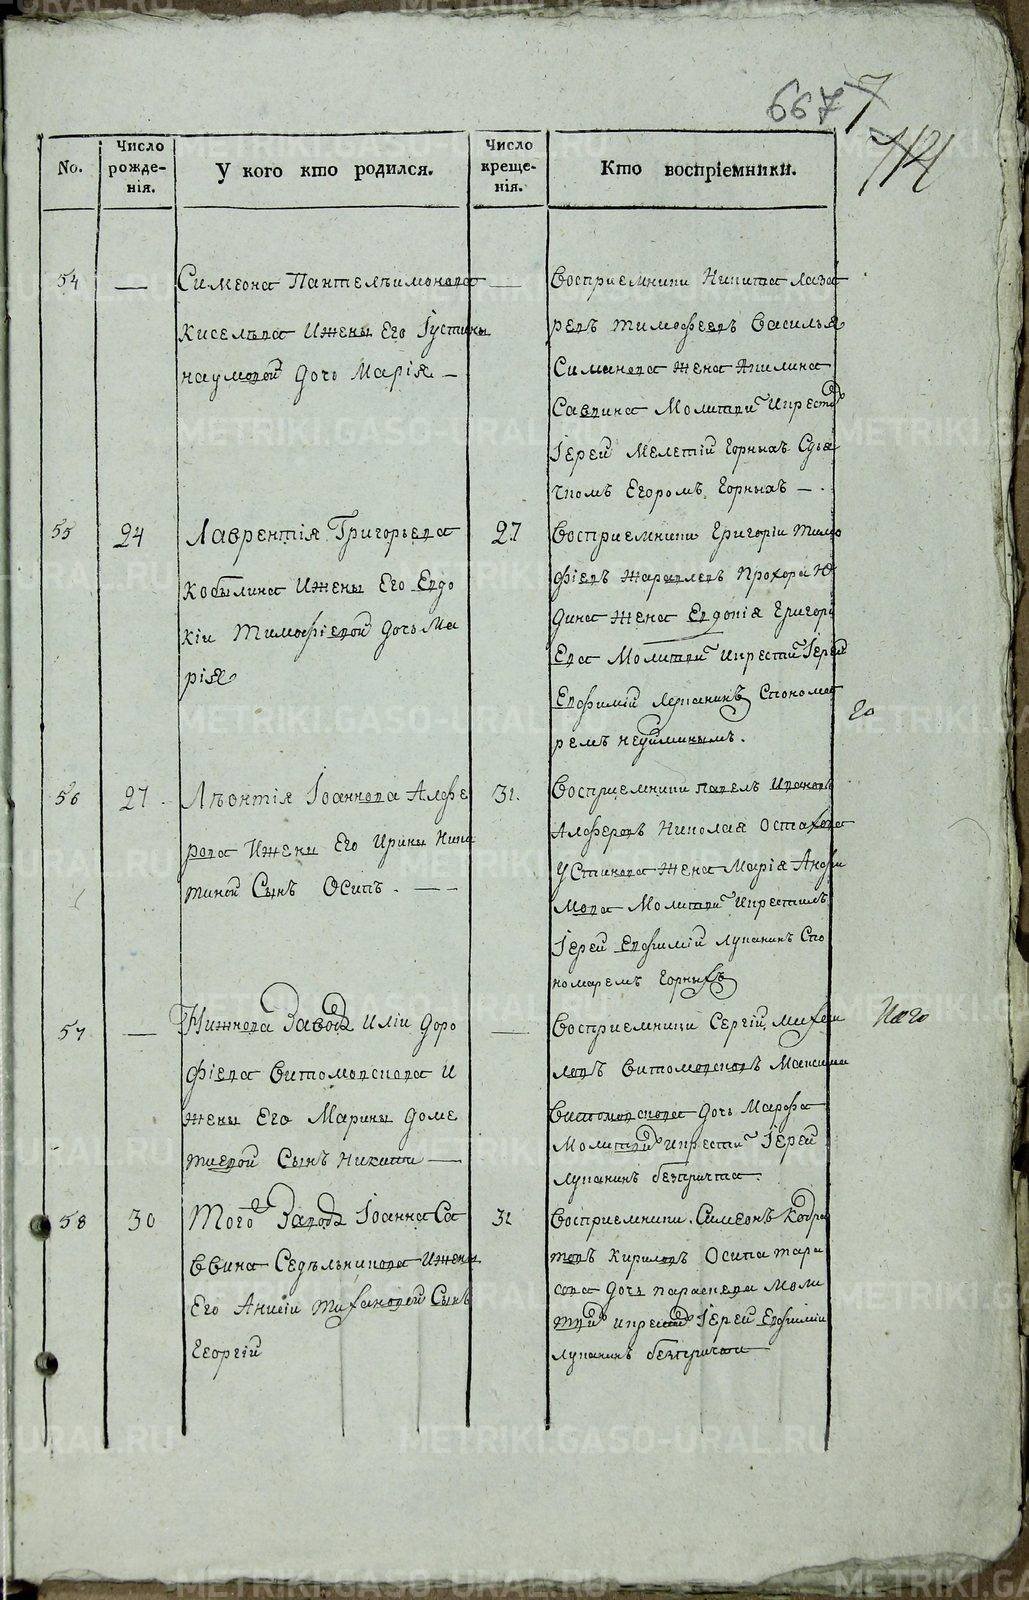 667 7
No.
Число рожде-нія.
У кого кто родился.
Число креще-нія.
Кто воспріемники.
54 —
Симеона Пантелѣимонова
Киселѣва Ижены Его Іустины
наумовой дочь Марія —
—
Восприемники Никита Лаза
ревъ тимофеевъ Василья
Симанова жена Акилина
Саввина Молитви
Іерей Мелетій Горныхъ Сдья
чкомъ Егоромъ Горныхъ — .
55 24
Лаврентія Григорьева
Кобылина Ижены Его Евдо
кіи Тимофіевой дочь Ма
рія
27
Восприемники Григоріи тимо
фіевъ Прохора Ю
дина жена Евдокія Григорі
Ева Молитви икрести Іерей
Евфимій Лупанинъ Спонома
ремъ неуйминымъ.
56 27.
Лѣонтія Іоаннова Алфе
рова Ижены Его Ирины Ники
тиной Сынъ Осипъ. — —
31.
Восприемники павелъ Ивановъ
Алферовъ Николая Остахова
Устинова жена Марія Анфи
мова Молитви Икрестилъ
Іерей Евфимій Лупанинъ Спо
номаремъ Горныхъ
57 —
Нижнева Завода Иліи доро
фіева Витоморскова И
жены Его Марины доме
тиевой Сынъ Никита —
—
Восприемники Сергій Михаи
ловъ Витоморсковъ Максима
Витоморскова дочь Марфа
Молитвй икрести Іерей
Лупанинъ безпричта.
58 30
Того Завода Іоанна Са
ввина Седѣльникова Ижены
Его Анисіи тихановой Сынъ
Георгій
31
Восприемники Симеонъ Кодра
товъ Кириловъ Осипа тара
сова дочь параскева Моли
твй икрести Іерей Евфимій
Лупанинъ безпричта
METRIKI.GASO-URAL.RU